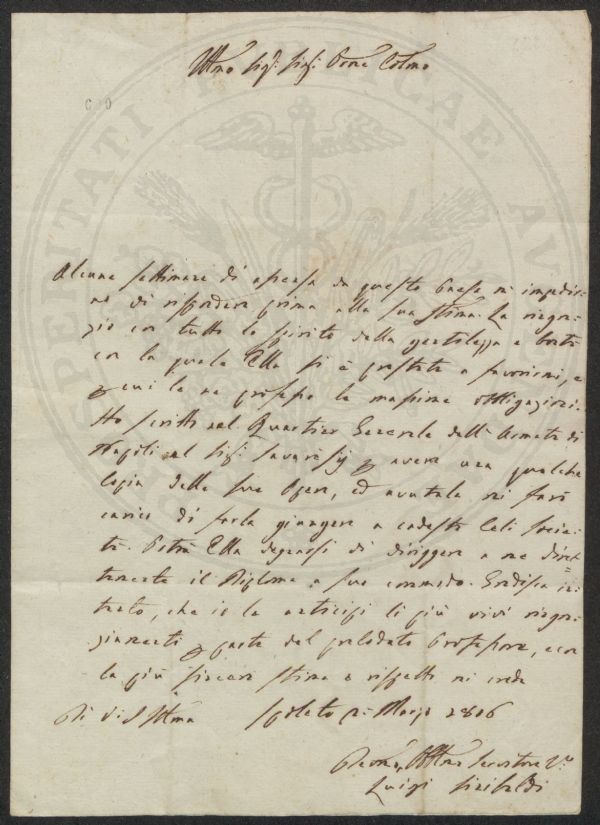 Illmo Sigr Sigr Prone Colmo
Alcune settimane di assenza da questo Paese mi impediro-
no di rispondere prima alla sua stima. La ringra-
zio con tutto lo spirito della gentilezza e bontà
con la quale Ella si è prestata a favorirmi, e
per cui le ne professo le massime obbligazioni.
Ho scritto nel Quartier Generale dell'Armata di
Napoli al Sigr Savaresy per avere una qualche
Copia delle sue Opere, ed avutala mi farò
carico di farla giungere a codesta Cel Socie-
tà. Potrà Ella degnarsi di diriggere a me diret-
tamente il Diploma a suo commodo. Gradisca in-
tanto, che io le anticipi li più vivi ringra-
ziamenti per parte del prelodato Professore, e con
la più sincera stima e rispetto mi creda
Di V. S. Illma Spoleto Marzo 1806
Servitore Vo
Luigi